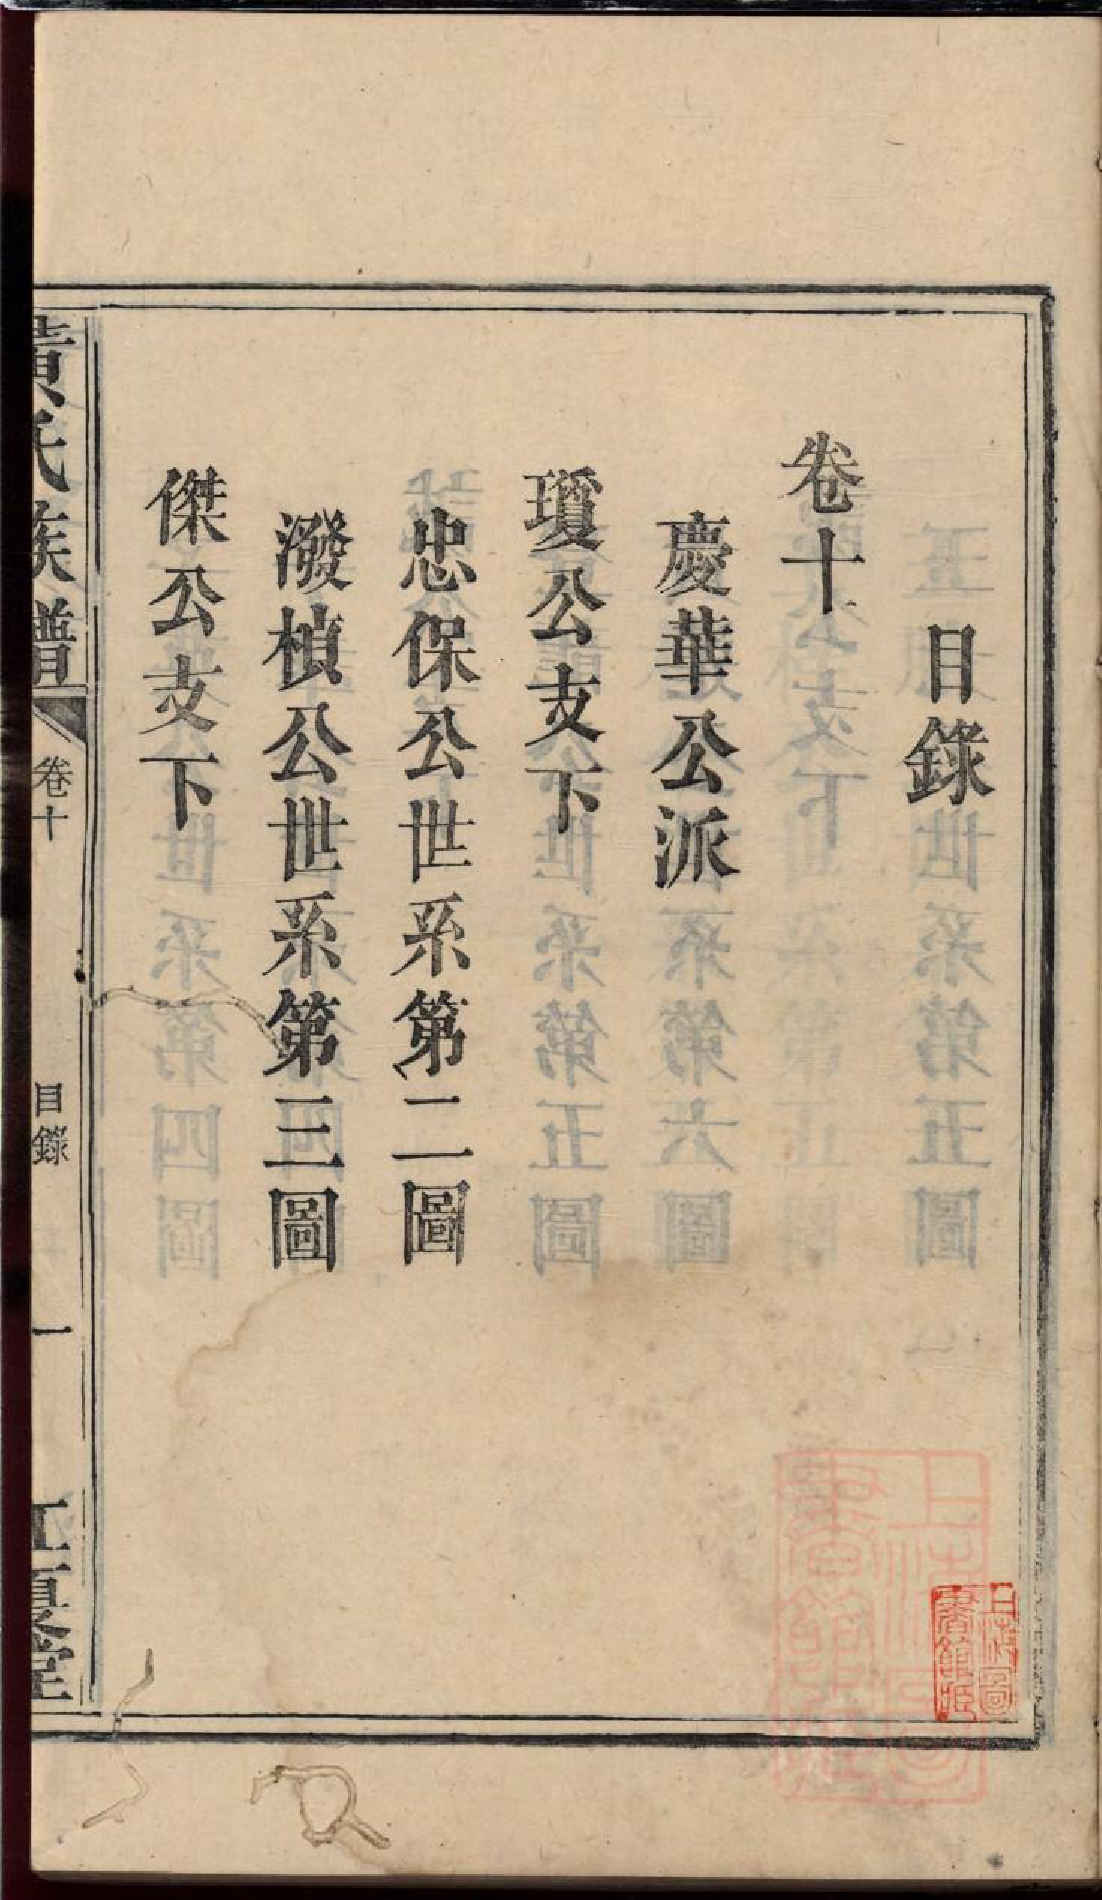 目錄
卷十
慶華公派
瓊公支下
忠保公世系第二圖
潑楨公世系第三圖
傑公支下
黃氏族譜
卷十
目錄
一
江夏堂